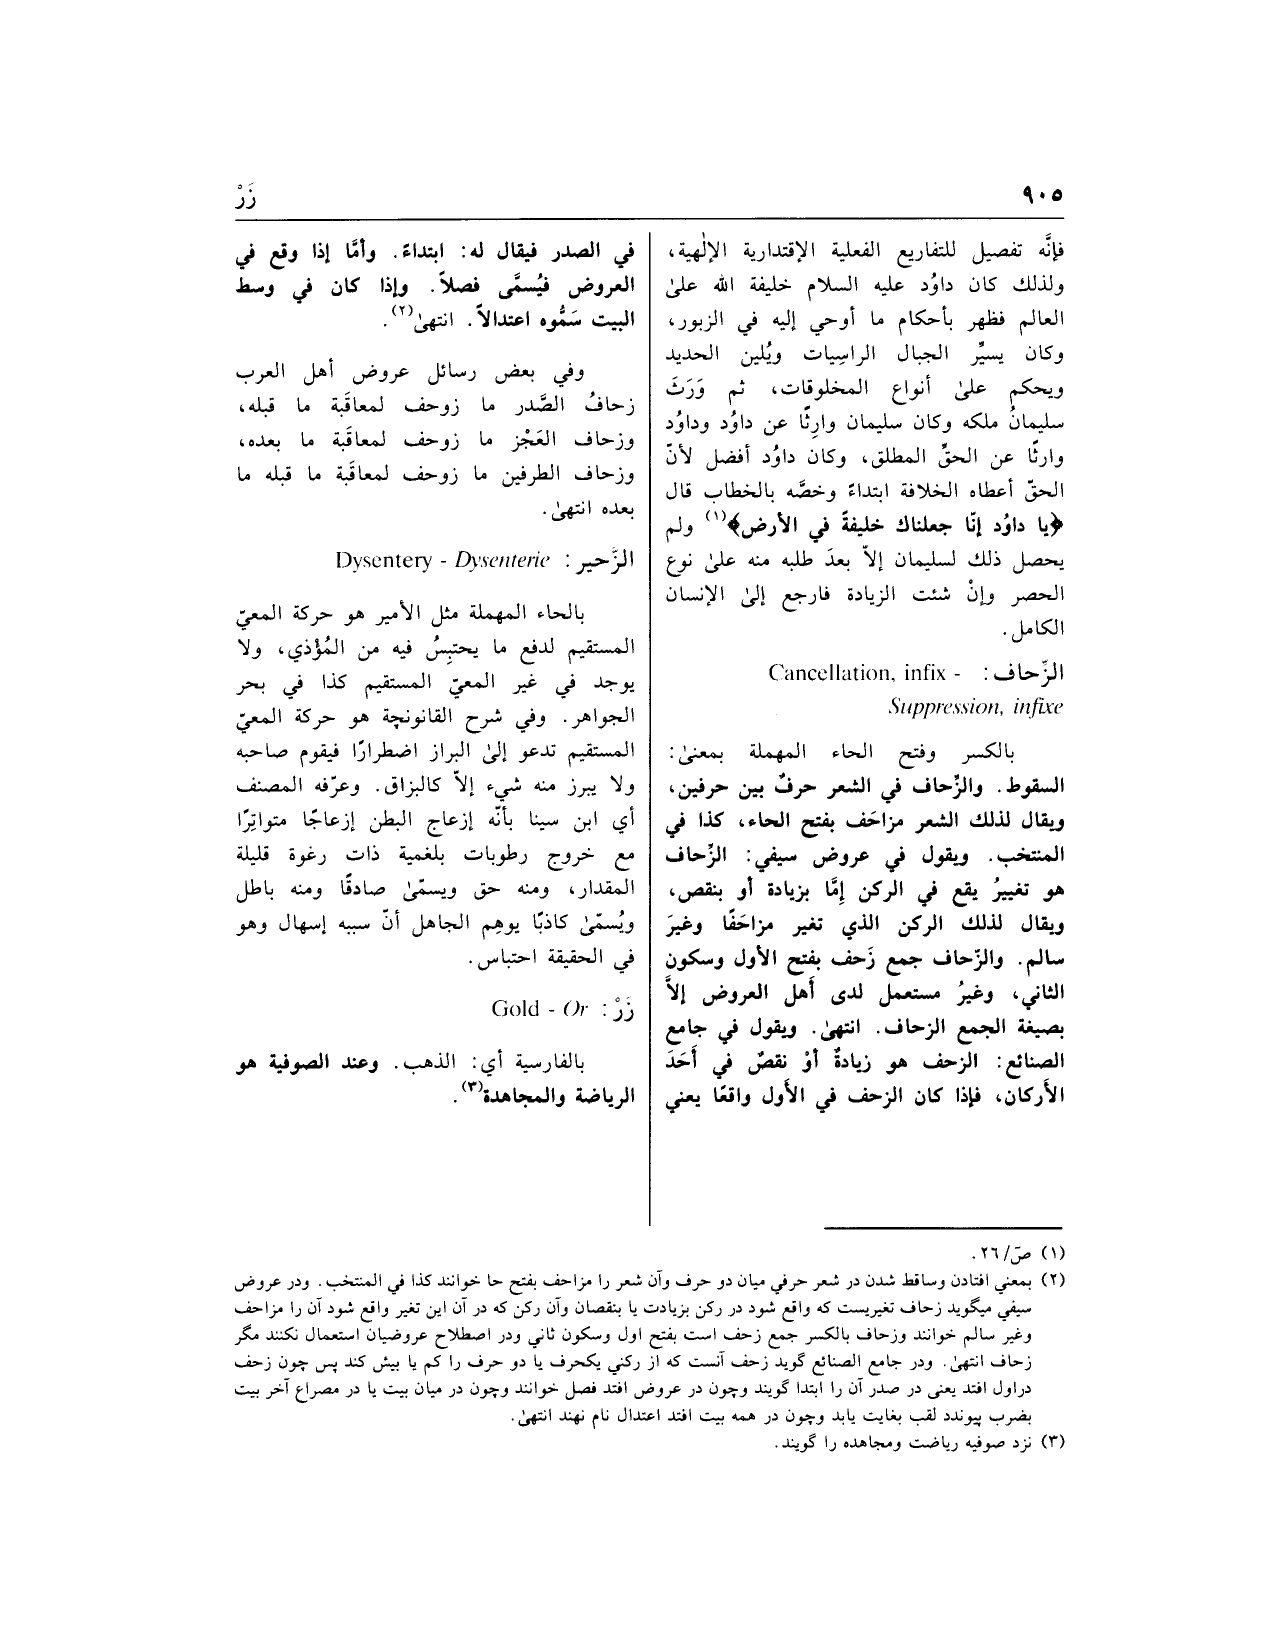 ٩٠٥
زَرْ
فإنَّه تفصيل للتفاريع الفعلية الإقتدارية الإلٰهية،
ولذلك كان داوُد عليه السلام خليفة الله علىٰ
العالم فظهر بأحكام ما أوحي إليه في الزبور،
وكان يسيِّر الجبال الراسِيات ويُلين الحديد
ويحكم علىٰ أنواع المخلوقات، ثم وَرَثَ
سليمانُ ملكه وكان سليمان وارِثًا عن داوُد وداوُد
وارثًا عن الحقِّ المطلق، وكان داوُد أفضل لأنّ
الحقّ أعطاه الخلافة ابتداءً وخصَّه بالخطاب قال
﴿يا داوُد إنّا جعلناك خليفةً في الأرض﴾(١) ولم
يحصل ذلك لسليمان إلاّ بعدَ طلبه منه علىٰ نوع
الحصر وإنْ شئت الزيادة فارجع إلىٰ الإنسان
الكامل.
الزِّحاف: Cancellation, infix -
Suppression, infixe
بالكسر وفتح الحاء المهملة بمعنىٰ:
السقوط. والزِّحاف في الشعر حرفٌ بين حرفين،
ويقال لذلك الشعر مزاحَف بفتح الحاء، كذا في
المنتخب. ويقول في عروض سيفي: الزِّحاف
هو تغييرُ يقع في الركن إمَّا بزيادة أو بنقص،
ويقال لذلك الركن الذي تغير مزاحَفًا وغيرَ
سالم. والزّحاف جمع زَحف بفتح الأول وسكون
الثاني، وغيرُ مستعمل لدى أهل العروض إلاَّ
بصيغة الجمع الزحاف. انتهىٰ. ويقول في جامع
الصنائع: الزحف هو زيادةٌ أوْ نقصٌ في أَحَدَ
الأَركان، فإذا كان الزحف في الأَول واقعًا يعني
في الصدر فيقال له: ابتداءً. وأمَّا إذا وقع في
العروض فيُسمَّى فصلاً. وإذا كان في وسط
البيت سَمُّوه اعتدالاً. انتهىٰ(٢).
وفي بعض رسائل عروض أهل العرب
زحافُ الصَّدر ما زوحف لمعاقَبة ما قبله،
وزحاف العَجْز ما زوحف لمعاقَبة ما بعده،
وزحاف الطرفين ما زوحف لمعاقَبة ما قبله ما
بعده انتهىٰ.
الزَّحير: Dysentery - Dysenterie
بالحاء المهملة مثل الأمير هو حركة المعيّ
المستقيم لدفع ما يحتبِسُ فيه من المُؤْذي، ولا
يوجد في غير المعيّ المستقيم كذا في بحر
الجواهر. وفي شرح القانونچة هو حركة المعيّ
المستقيم تدعو إلىٰ البراز اضطرارًا فيقوم صاحبه
ولا يبرز منه شيء إلاّ كالبزاق. وعرّفه المصنف
أي ابن سينا بأنّه إزعاج البطن إزعاجًا متواتِرًا
مع خروج رطوبات بلغمية ذات رغوة قليلة
المقدار، ومنه حق ويسمّىٰ صادقًا ومنه باطل
ويُسمّىٰ كاذبًا يوهِم الجاهل أنّ سببه إسهال وهو
في الحقيقة احتباس.
زَرْ: Gold - Or
بالفارسية أي: الذهب. وعند الصوفية هو
الرياضة والمجاهدة(٣).
(١) صّ/٢٦.
(٢) بمعني افتادن وساقط شدن در شعر حرفي ميان دو حرف وآن شعر را مزاحف بفتح حا خوانند كذا في المنتخب. ودر عروض
سيفي ميگويد زحاف تغيريست كه واقع شود در ركن بزيادت يا بنقصان وآن ركن كه در آن اين تغير واقع شود آن را مزاحف
وغير سالم خوانند وزحاف بالكسر جمع زحف است بفتح اول وسكون ثاني ودر اصطلاح عروضيان استعمال نكنند مگر
زحاف انتهىٰ. ودر جامع الصنائع گويد زحف آنست كه از ركني يكحرف يا دو حرف را كم يا بيش كند پس چون زحف
دراول افتد يعنى در صدر آن را ابتدا گويند وچون در عروض افتد فصل خوانند وچون در ميان بيت يا در مصراع آخر بيت
بضرب پيوندد لقب بغايت يابد وچون در همه بيت افتد اعتدال نام نهند انتهىٰ.
(٣) نزد صوفيه رياضت ومجاهده را گويند.